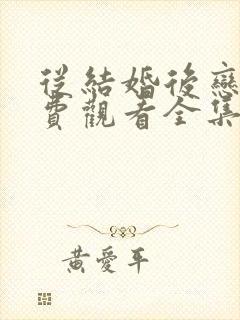 從結婚後戀
費觀看全集
黃愛平